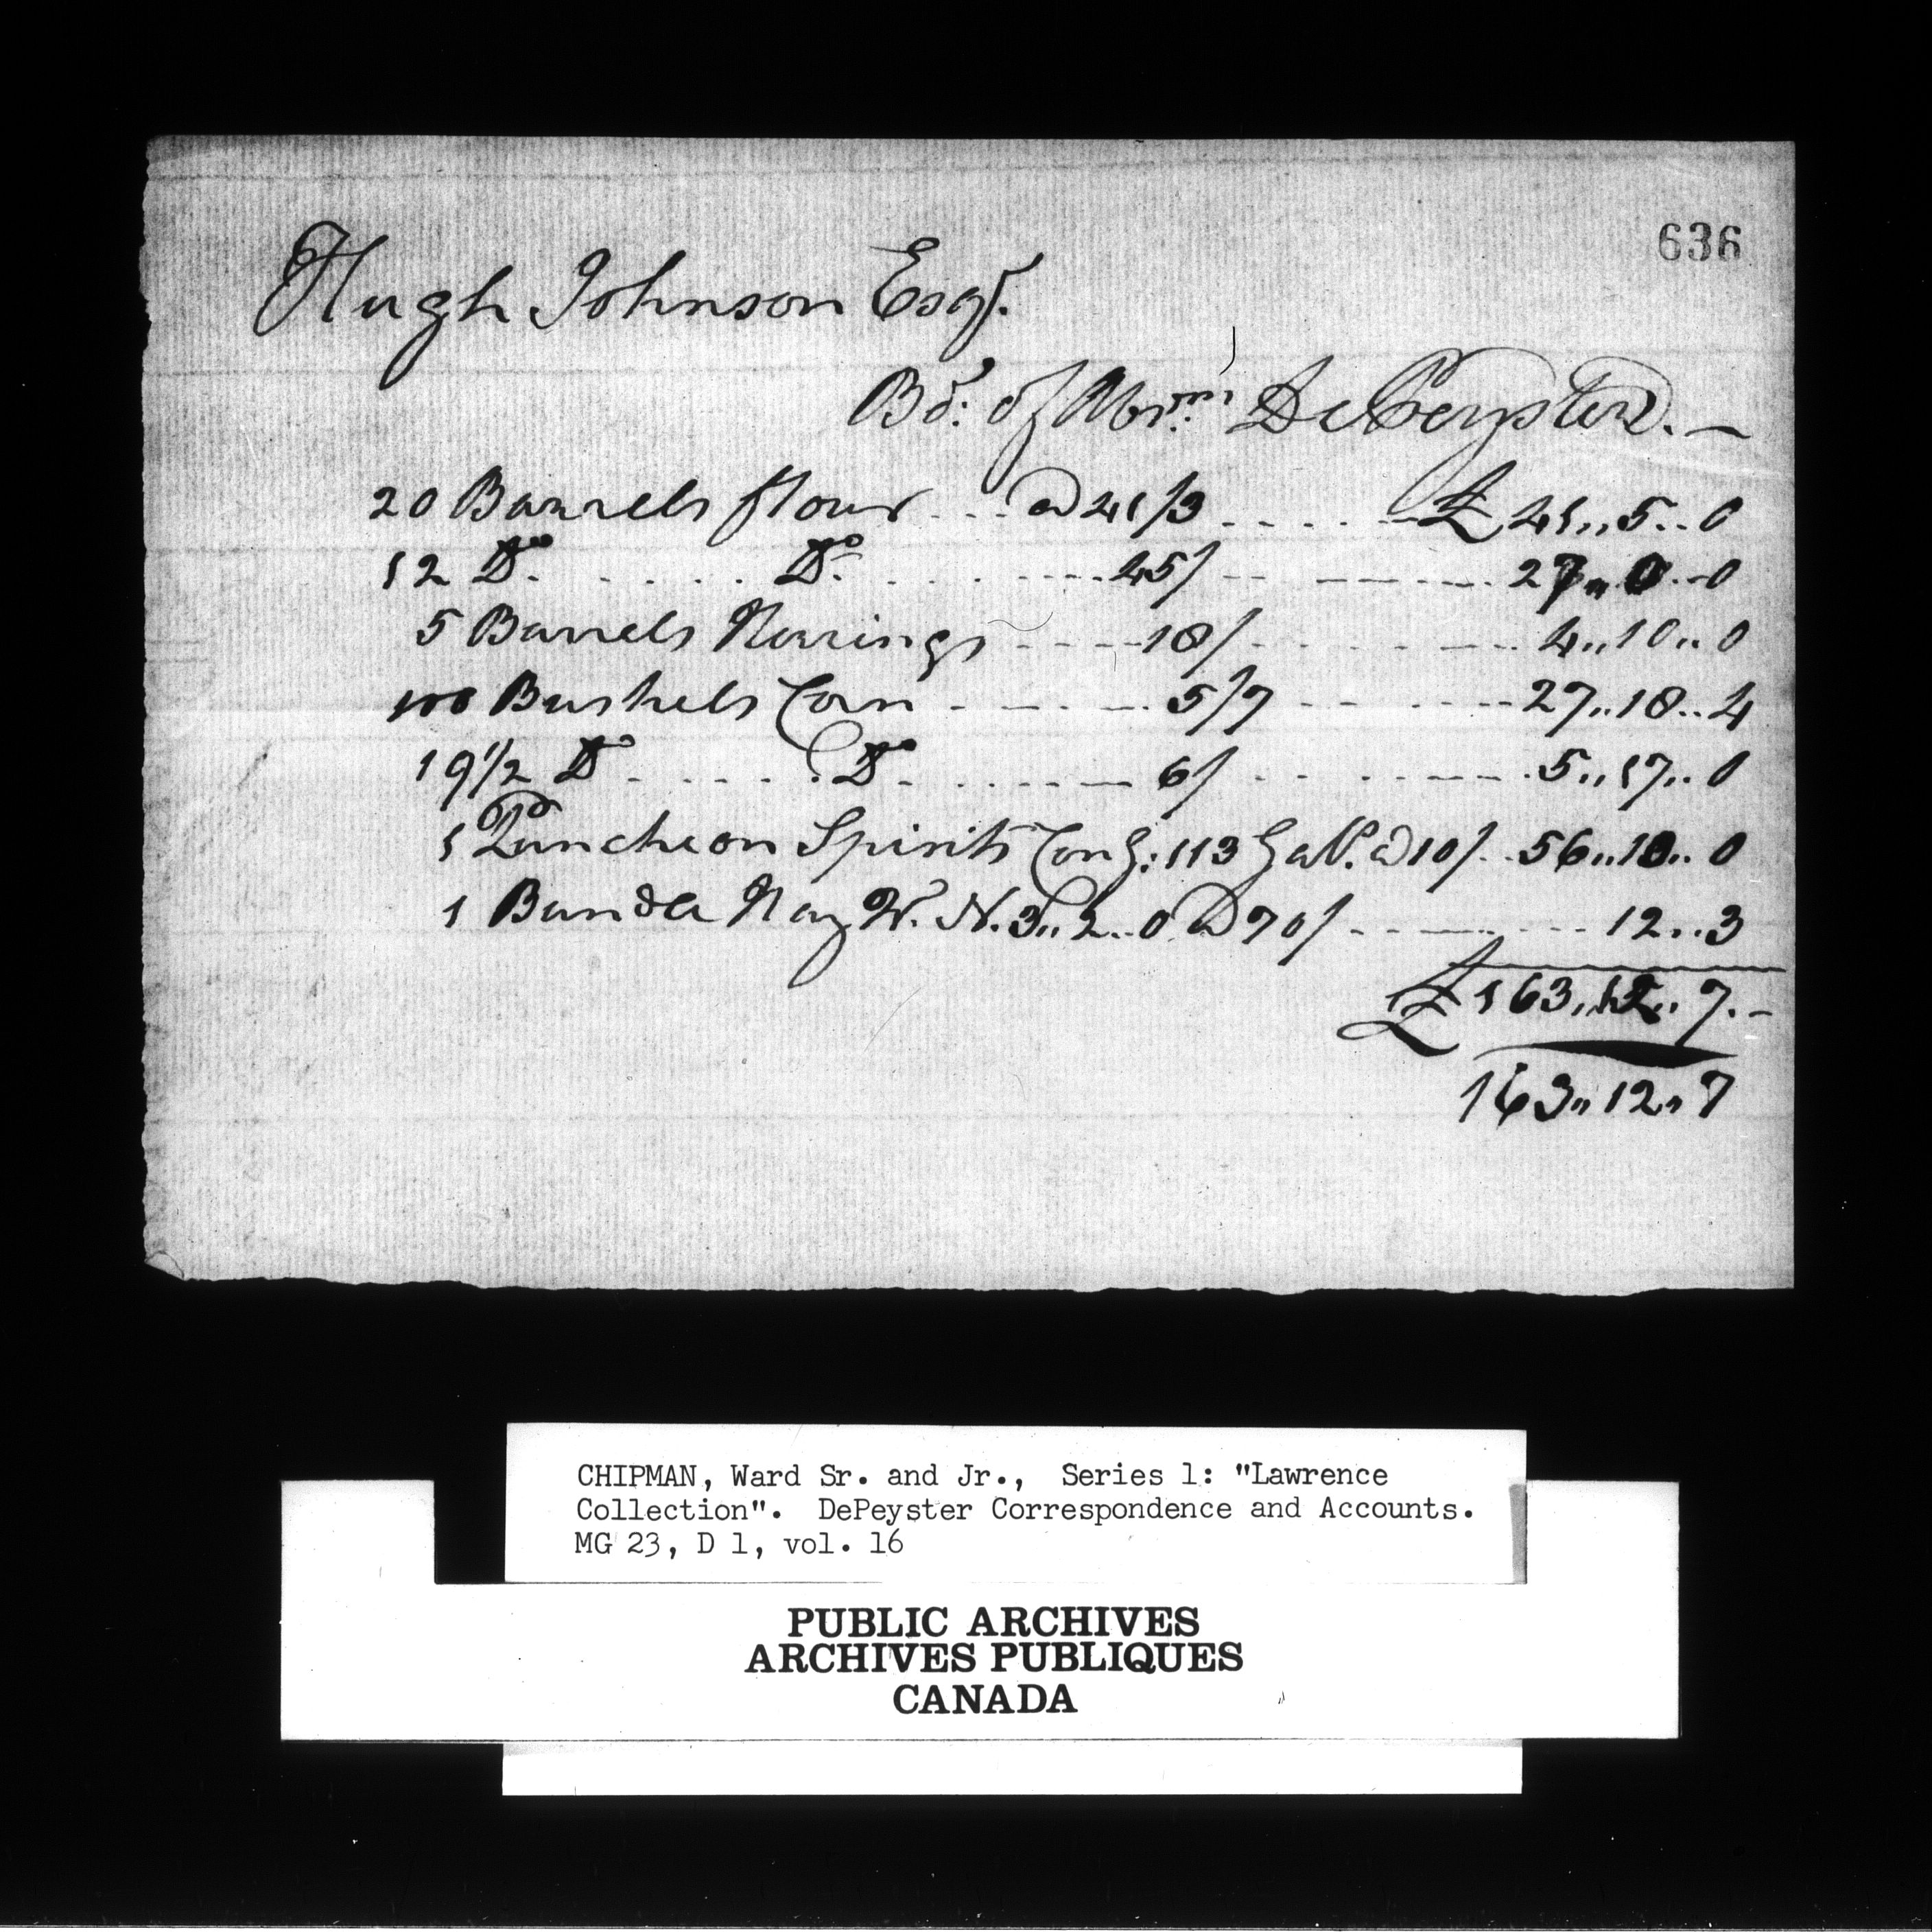 636
Hugh Johnson Esqr.
Bo't: of Abrm: DePeyster.—
20 Barrels flour . . . @ 41/3 . . . . . . £ 41,,5..0
12 Do. . . . . . Do. . . . . . . 45/ . . . . . . 27,,0..0
5 Barrels Herrings . . . . 18/ . . . . . . 4,,10..0
100 Bushels Corn . . . . . 5/7 . . . . . . 27..18..4
19 1/2 Do . . . . . Do . . . . . . 6/ . . . . . . 5..17..0
1 Puncheon Spirits Cong: 113 Gall. @ 10/ . . 56..10..0
1 Bundle Hay W. N. 3,,2..0 @ 70/ . . . . . . 12..3
£ 163,,12,,7.-
163,,12,,7
CHIPMAN, Ward Sr. and Jr., Series 1: "Lawrence
Collection". DePeyster Correspondence and Accounts.
MG 23, D 1, vol. 16
PUBLIC ARCHIVES
ARCHIVES PUBLIQUES
CANADA